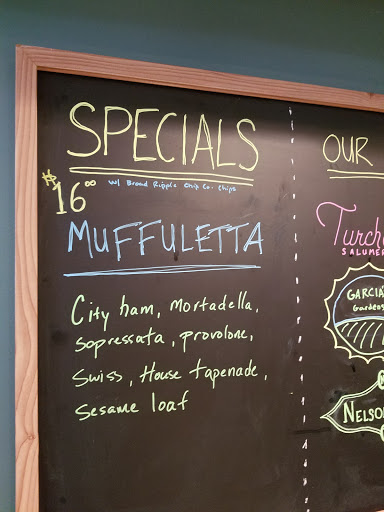 SPECIALS
w/ Broad Ripple Chip Co. Chips
$16⁰⁰
MUFFULETTA
City ham, Mortadella,
Sopressata, provolone,
Swiss, House tapenade,
Sesame loaf
OUR
Turch
SALUMER
GARCIA'
Gardens
NELSO